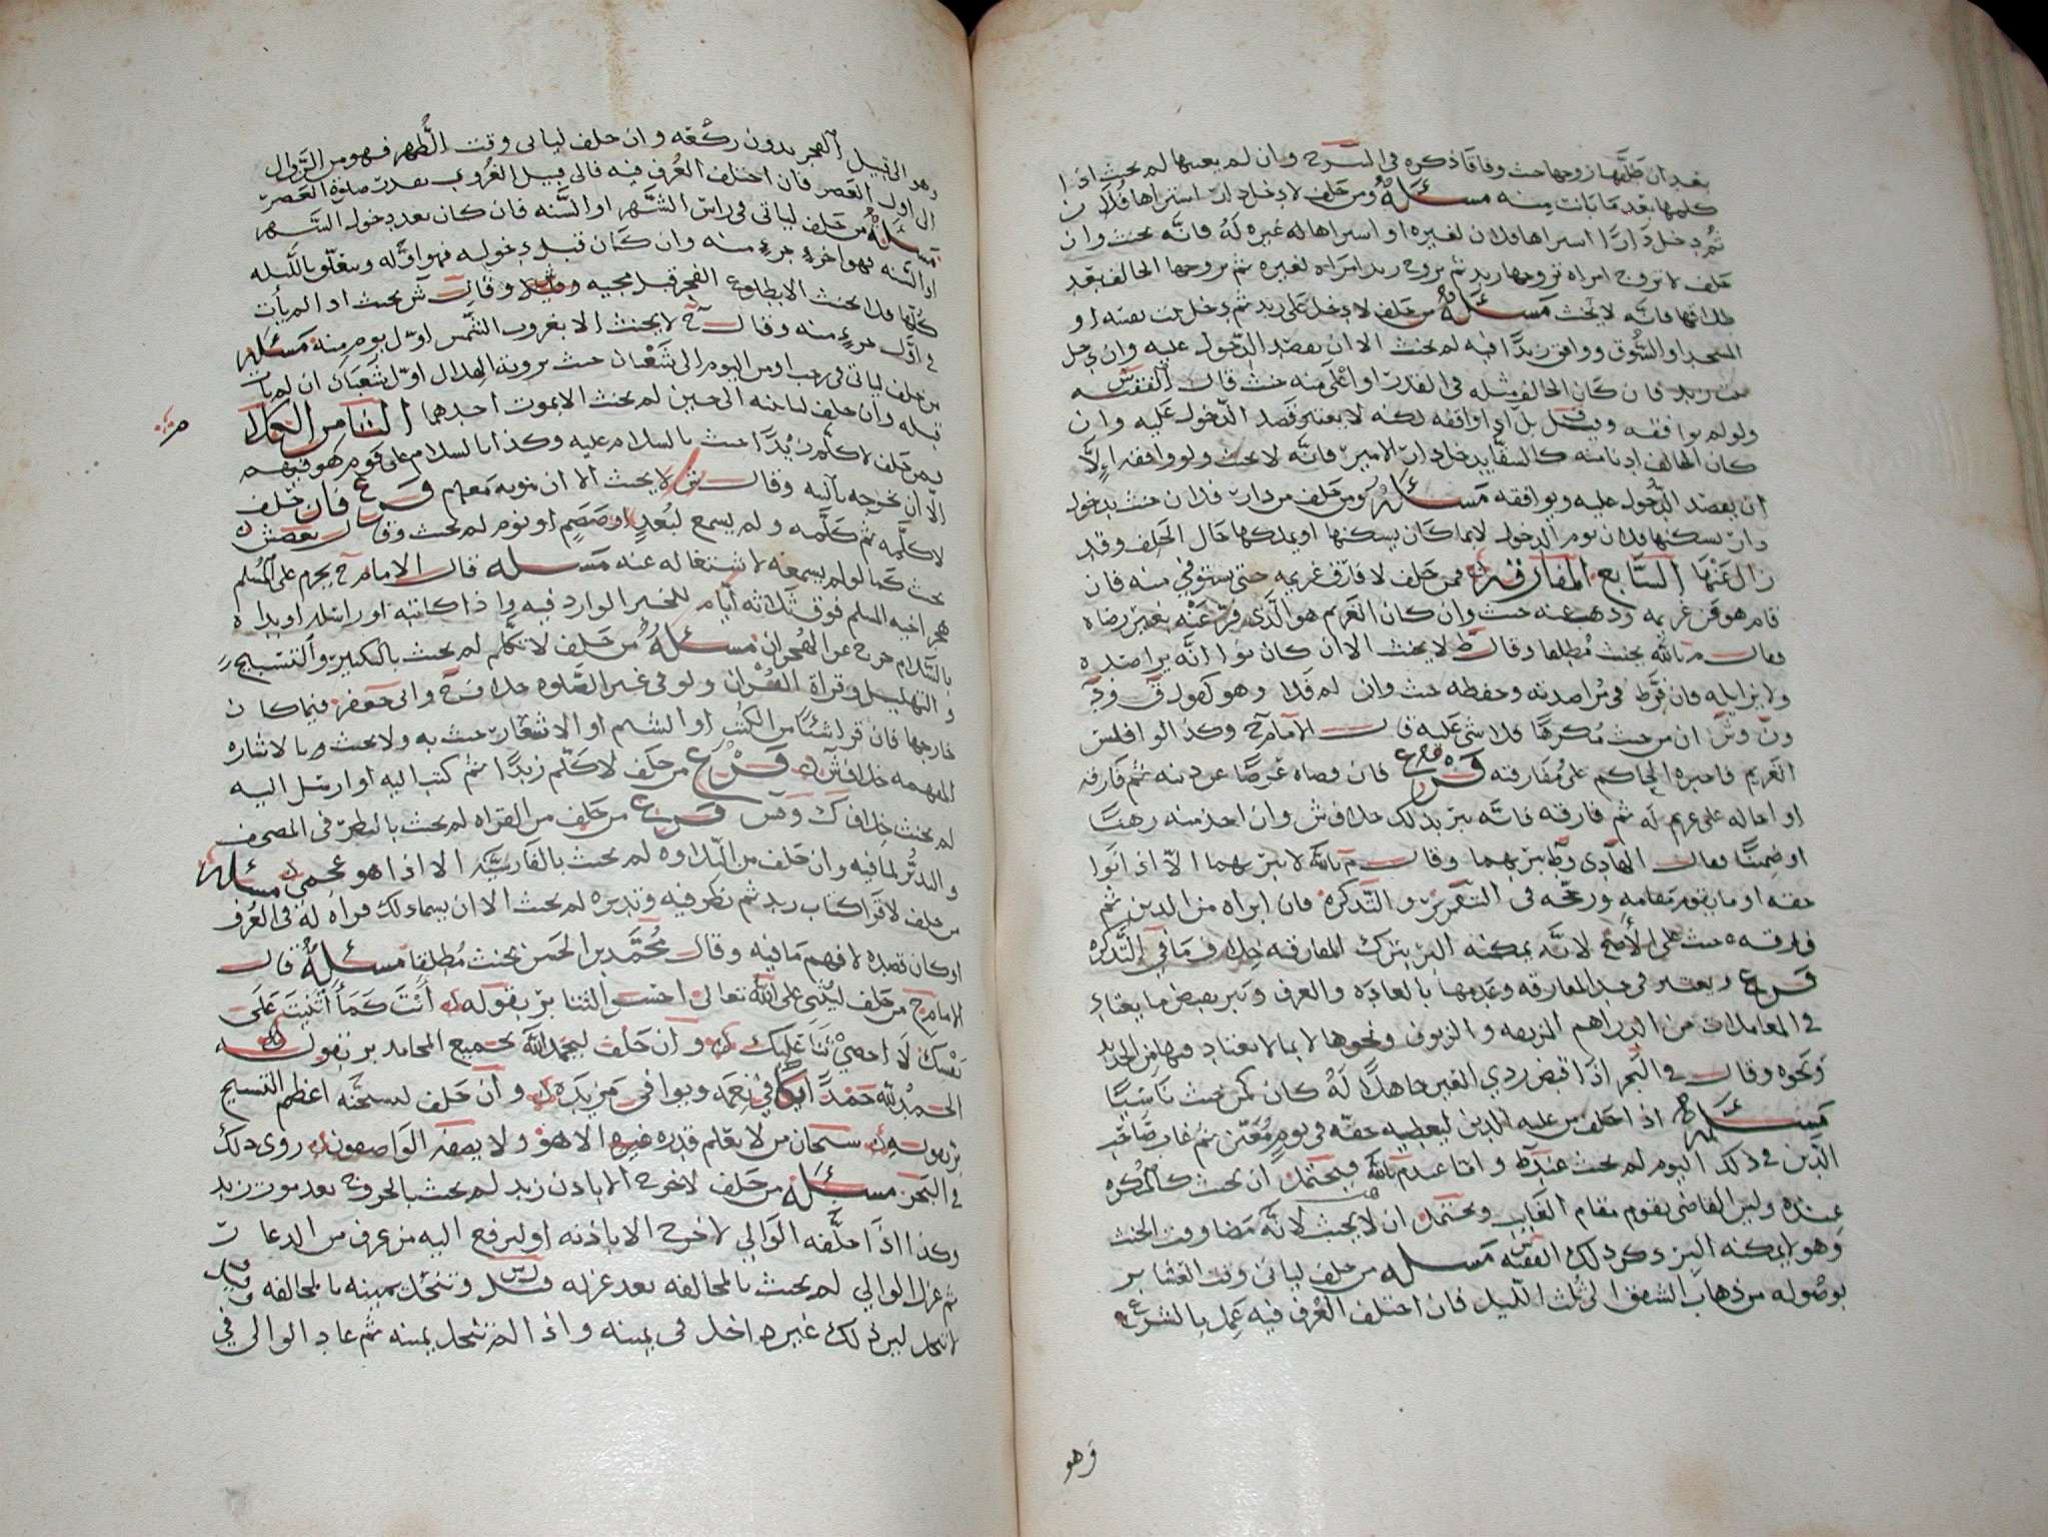 بعد ان طلقها زوجها حنث وفاقا ذكره في الشرح وان لم يعينها لم يحنث اذا
كلمها بعد ما بانت منه مسئلة ومن حلف لا دخل دارا اشتراها فلان
ثم دخل دارا اشتراها فلان لغيره او اشتراها له غيره له فانه يحنث وان
حلف لا تزوج امراة تزوجها زيد ثم تزوج زيد امراة لغيره ثم تزوجها الحالف بعد
طلاقها فانه لا يحنث مسئلة من حلف لا دخل على زيد ثم دخل بيت نفسه او
المسجد او السوق ووافق زيدا فيه لم يحنث الا ان يقصد الدخول عليه وان دخل
بيت زيد فان كان الحالف مثله في القدر او اعلى منه حنث قال الفقيه
ولو لم يوافقه وقيل بل اذا وافقه لكنه لا يعتبر قصد الدخول عليه وان
كان الحالف ادنا منه كالسقا يدخل دار الامير فانه لا يحنث ولو وافقه الا
ان يقصد الدخول عليه ويوافقه مسئلة ومن حلف من دار فلان حنث بدخول
دار يسكنها فلان يوم الدخول لا بما كان يسكنها او يملكها حال الحلف وقد
زال عنها السابع المفارقة فمن حلف لا فارق غريمه حتى يستوفي منه فان
قام هو من غريمه وذهب عنه حنث وان كان الغريم هو الذي فر عنه بغير رضاه
فقال م بالله يحنث مطلقا وقال ط لا يحنث الا ان كان نوا انه يراصده
ولا يزايله فان فرط في مراصدته وحفظه حنث وان لم فلا وهو كقول ق
ان من حنث مكرها فلا شي عليه قال الامام ح وكذا لو افلس
الغريم فاجبره الحاكم على مفارقته فرع فان قضاه عرضا عن دينه ثم فارقه
او احاله على غريم له ثم فارقه فانه يبر بذلك خلاف ش وان اخذ منه رهنا
او ضمينا فقال الهادي وط يبر بهما وقال م بالله لا يبر بهما الا اذا نوا
حقه او ما يقوم مقامه ورجحه في التقرير والتذكرة فان ابراه من الدين ثم
فارقه حنث على الاصح لانه يمكنه البر بترك المفارقة خلاف ما في التذكرة
فرع ويعتبر في حد المفارقة وعدمها بالعادة والعرف ويبر بقبض ما يعتاد
في المعاملات من الدراهم المزيفة والزيوف ونحوها لا بما لا يعتاد فيها من الحديد
ونحوه وقال في البحر اذا قبض ردي العين جاهلا له كان كمن حنث ناسيا
مسئلة اذا حلف من عليه الدين ليعطيه حقه في يوم معين ثم غاب صاحب
الدين في ذلك اليوم لم يحنث عند ط واما عند م بالله فيحتمل ان يحنث كالمكره
عنده وليس القاضي يقوم مقام الغايب ويحتمل ان لا يحنث لانه مضا وقت الحنث
وهو لا يمكنه البر ذكر ذلك الفقيه س مسئلة من حلف لياتي وقت العشا بر
بوصوله من ذهاب الشفق الى ثلث الليل فان اختلف العرف فيه عمل بالشرع
وهو
وهو الى قبيل الفجر بدون ركعة وان حلف لياتي وقت الظهر فهو من الزوال
الى اول العصر فان اختلف العرف فيه فالى قبيل الغروب بقدر صلوة العصر
مسئلة من حلف لياتي في راس الشهر او السنه فان كان بعد دخول الشهر
او السنه فهو اخر جزء منه وان كان قبل دخوله فهو اوله ويتعلق بالليله
كلها فلا يحنث الا بطلوع الفجر قبل مجيه وقال ش يحنث اذا لم يات
في اول جزء منه وقال ح لا يحنث الا بغروب الشمس اول يوم منه مسئلة
من حلف لياتي في رجب او من اليوم الى شعبان حنث بروية الهلال اول شعبان ان لم يات
قبله وان حلف لياتينه الى حين لم يحنث الا بموت احدهما الثامن الكلام
فمن حلف لا كلم زيدا حنث بالسلام عليه وكذا بالسلام على قوم هو فيهم
الا ان يخرجه بالنيه وقال ش لا يحنث الا ان نويه معهم فرع فان حلف
لا كلمه ثم كلمه ولم يسمع لبعد او صمم او نوم لم يحنث وقال بعض ش
يحنث كما لو لم يسمعه لاشتغاله عنه مسئله قال الامام ح يحرم على المسلم
هجر اخيه المسلم فوق ثلاثة ايام للخبر الوارد فيه واذا كاتبه او راسله او بداه
بالسلام خرج عن الهجران مسئلة من حلف لا تكلم لم يحنث بالتكبير والتسبيح
والتهليل وقراة القران ولو في غير الصلوة خلاف ح وابي جعفر فيما كان
خارجها فان قرا شيئا من الكتب او الشتم او الاشعار حنث به ولا يحنث بالاشاره
المفهمه خلاف ش فرع من حلف لا كلم زيدا ثم كتب اليه او ارسل اليه
لم يحنث خلاف ك فرع من حلف من القراه لم يحنث بالنظر في المصحف
والتدبر لما فيه وان حلف من التلاوه لم يحنث بالفارسية الا اذا هو عجمي مسئلة
من حلف لا قرا كتاب زيد ثم نظر فيه وتدبره لم يحنث الا ان يسما ذلك قراه له في العرف
او كان قصده لا فهم ما فيه وقال محمد بن الحسن يحنث مطلقا مسئلة قال
الامام ح من حلف ليثني على الله تعالى احسن الثنا بر بقوله انت كما اثنيت على
نفسك لا احصي ثنا عليك وان حلف ليحمد الله بجميع المحامد بر بقوله
الحمد لله حمدا يكافي نعمه ويوافي مزيده وان حلف ليسبحنه اعظم التسبيح
بر بقوله سبحان من لا يعلم قدره غيره الا هو ولا يصفه الواصفون روى ذلك
في البحر مسئلة من حلف لا خرج الا باذن زيد لم يحنث بالخروج بعد موت زيد
وكذا اذا حلفه الوالي لا خرج الا باذنه او ليرفع اليه من عرف من الدعار
ثم عزل الوالي لم يحنث بالمخالفه بعد عزله وتنحل يمينه بالمخالفه وقيل
لا تنحل لان ذلك غير داخل في يمينه واذا لم تنحل يمينه ثم عاد الوالي في